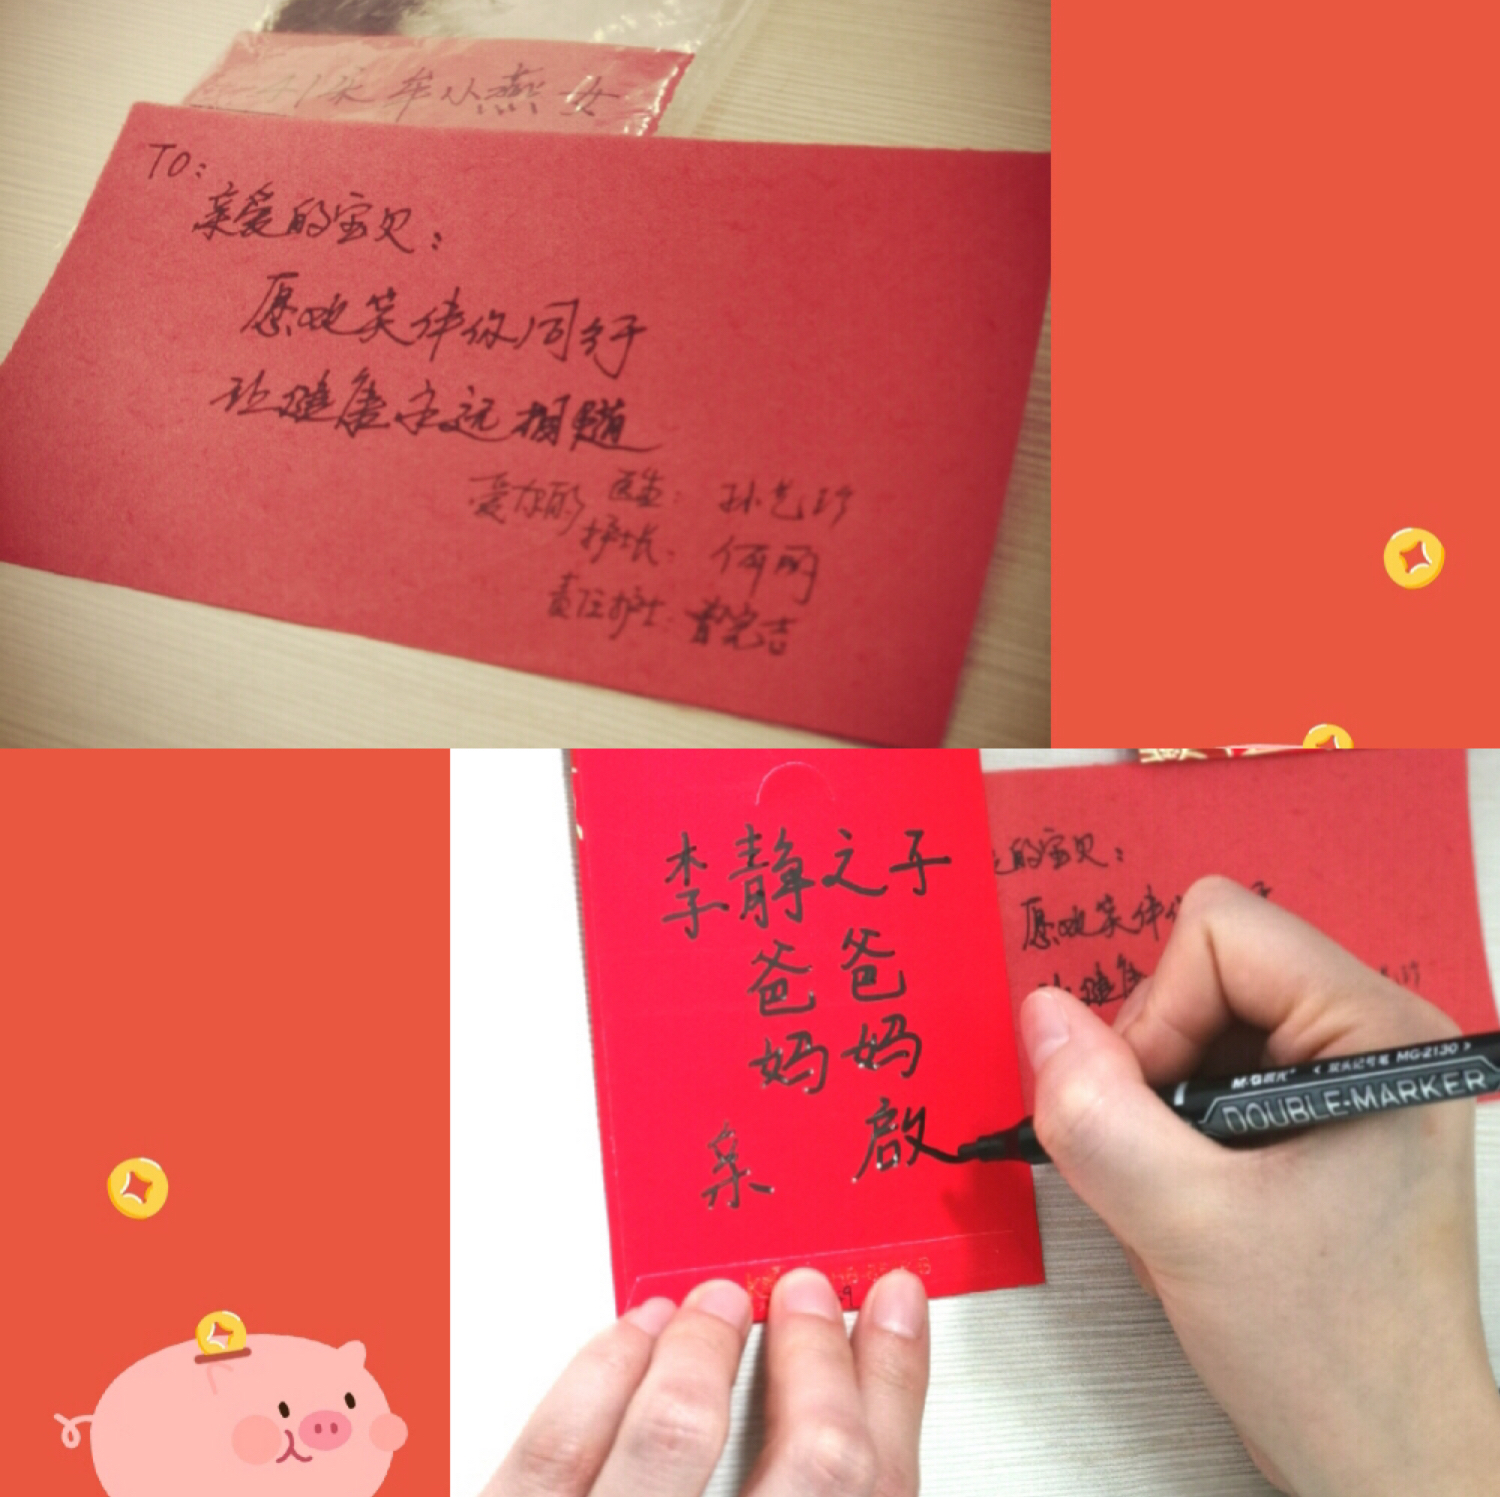 牟从燕 女
TO:
亲爱的宝贝:
愿欢笑伴你同行
让健康永远相随
爱你的 医生: 孙艺珍
护士长: 何丽
责任护士: 曹完吉
李静之子
爸爸
妈妈
亲 啟
的宝贝:
愿欢笑伴
让健康
M&G 晨光 MG-2130
DOUBLE-MARKER